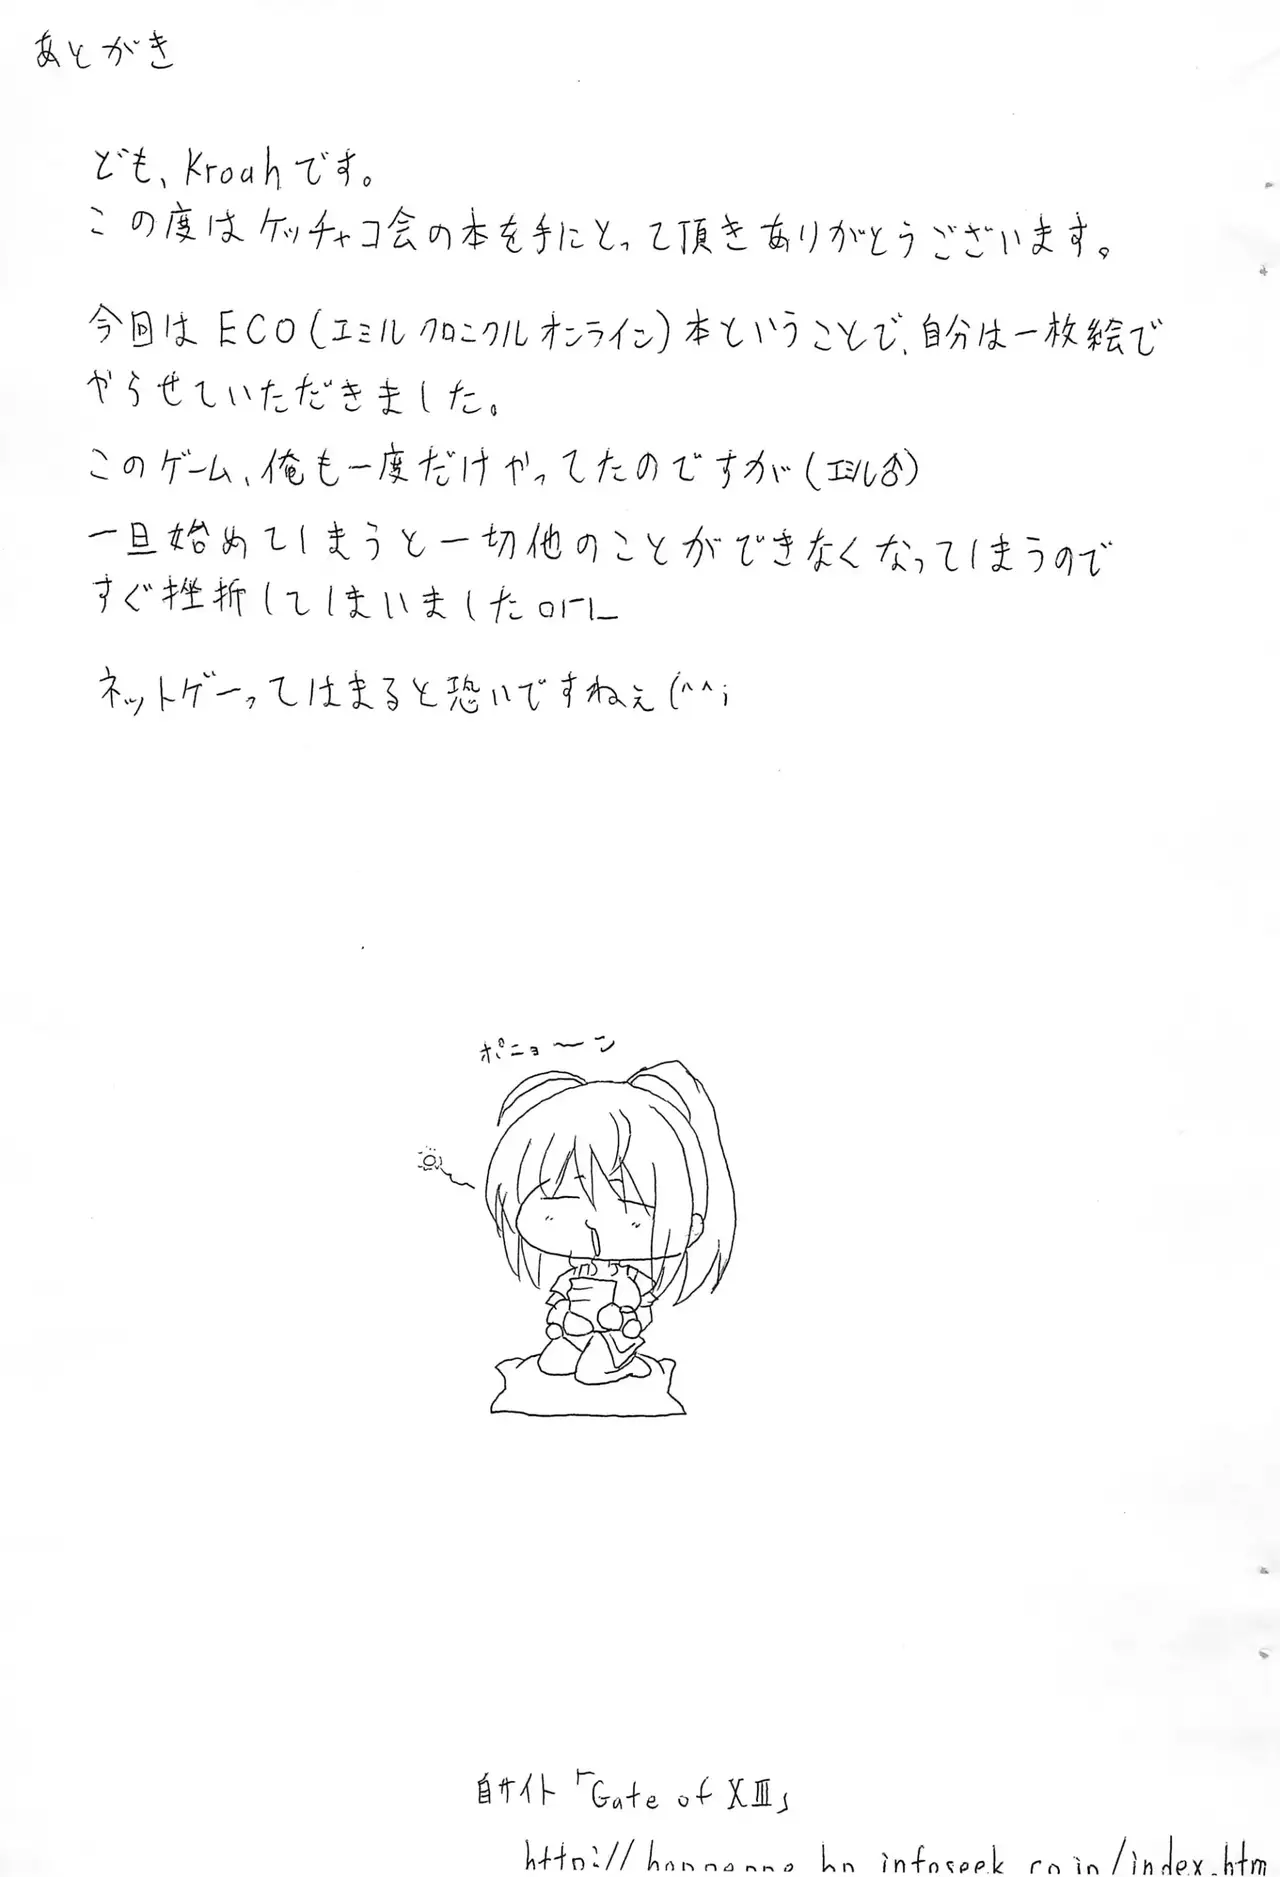 あとがき
ども、Kroahです。
この度はケッチャコ会の本を手にとって頂きありがとうございます。
今回はECO(エミルクロニクルオンライン)本ということで、自分は一枚絵で
やらせていただきました。
このゲーム、俺も一度だけやってたのですが(エミル♂)
一旦始めてしまうと一切他のことができなくなってしまうので
すぐ挫折してしまいましたorz
ネットゲーってはまると恐いですねぇ(^^;
ポニョ〜ン
自サイト「Gate of XIII」
infoseek.co.jp/index.htm